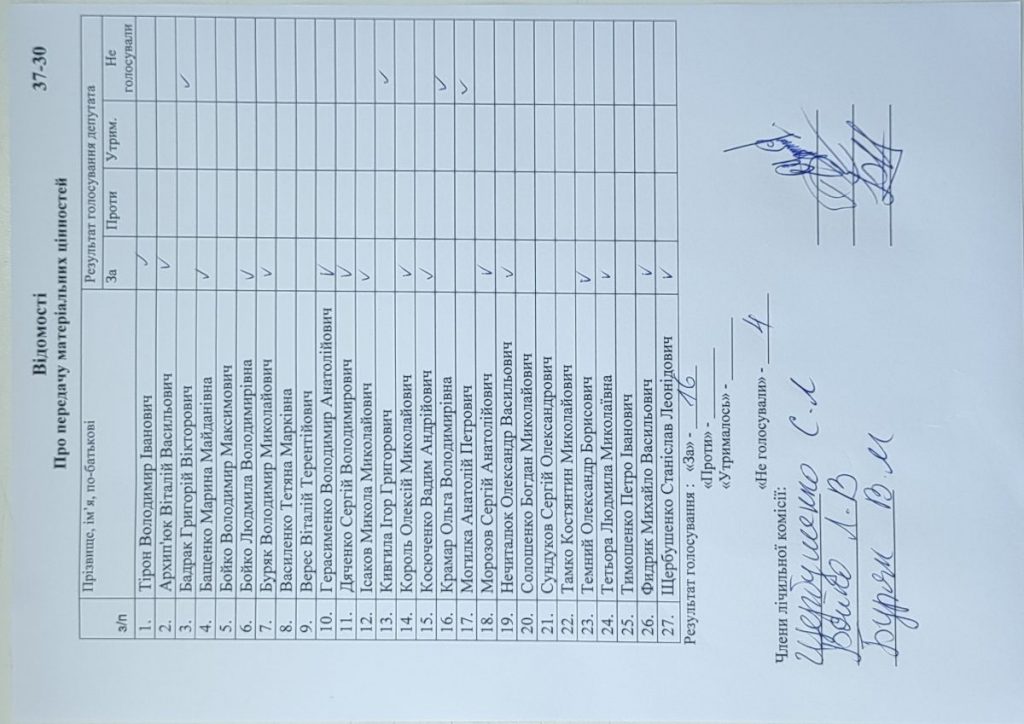 Відомості 37-30
Про передачу матеріальних цінностей
з/п Прізвище, ім'я, по-батькові Результат голосування депутата
За Проти Утрим. Не голосували
1. Тірон Володимир Іванович ✓
2. Архип'юк Віталій Васильович ✓
3. Бадрак Григорій Вікторович ✓
4. Бащенко Марина Майданівна ✓
5. Бойко Володимир Максимович
6. Бойко Людмила Володимирівна ✓
7. Буряк Володимир Миколайович ✓
8. Василенко Тетяна Марківна
9. Верес Віталій Терентійович
10. Герасименко Володимир Анатолійович ✓
11. Дяченко Сергій Володимирович ✓
12. Ісаков Микола Миколайович ✓
13. Кивгила Ігор Григорович ✓
14. Король Олексій Миколайович ✓
15. Косюченко Вадим Андрійович ✓
16. Крамар Ольга Володимирівна ✓
17. Могилка Анатолій Петрович ✓
18. Морозов Сергій Анатолійович ✓
19. Нечиталюк Олександр Васильович ✓
20. Солошенко Богдан Миколайович
21. Сундуков Сергій Олександрович
22. Тамко Костянтин Миколайович
23. Темний Олександр Борисович ✓
24. Тетьора Людмила Миколаївна ✓
25. Тимошенко Петро Іванович
26. Фидрик Михайло Васильович ✓
27. Щербушенко Станіслав Леонідович ✓
Результат голосування : «За» - 16
«Проти» -
«Утрималось» -
«Не голосували» - 4
Члени лічильної комісії:
Щербушенко С.Л
Бойко Л.В
Буряк В.М